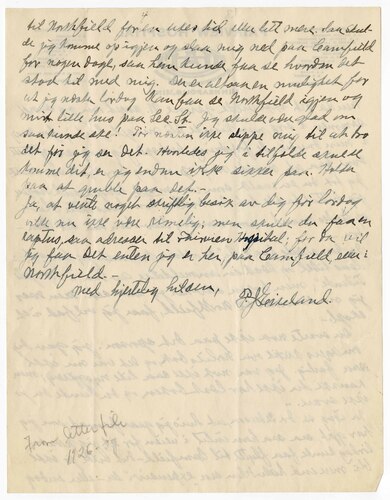 til Northfield for en ukes tid eller litt mere, saa skulde
jeg komme op igjen og slaa mig ned paa Camfield
for nogen dage, saa han kunde faa se hvordan det
stod til med mig. Der er altsaa en mulighet for
at jeg næste lørdag kan faa se Northfield igjen og
mit lille hus paa Lee St. Jeg skulde være glad om
saa hende ske! Tør næsten ikke slippe mig til at tro
det før jeg ser det. Hvorledes jeg i tilfælde skulde
komme dit, er jeg endnu ikke sikker paa. Holder
paa at gruble paa det.—
Ja, at vente noget skriftlig besøk av dig før lørdag
vilde nu ikke være rimelig; men skulde du faa en
raptus, saa adresser til Fairview Hospital; for da vil
jeg faa det enten jeg er her, paa Camfield eller i
Northfield.—
Med hjertelig hilsen,
P.J. Eikeland.
From letter file
1926